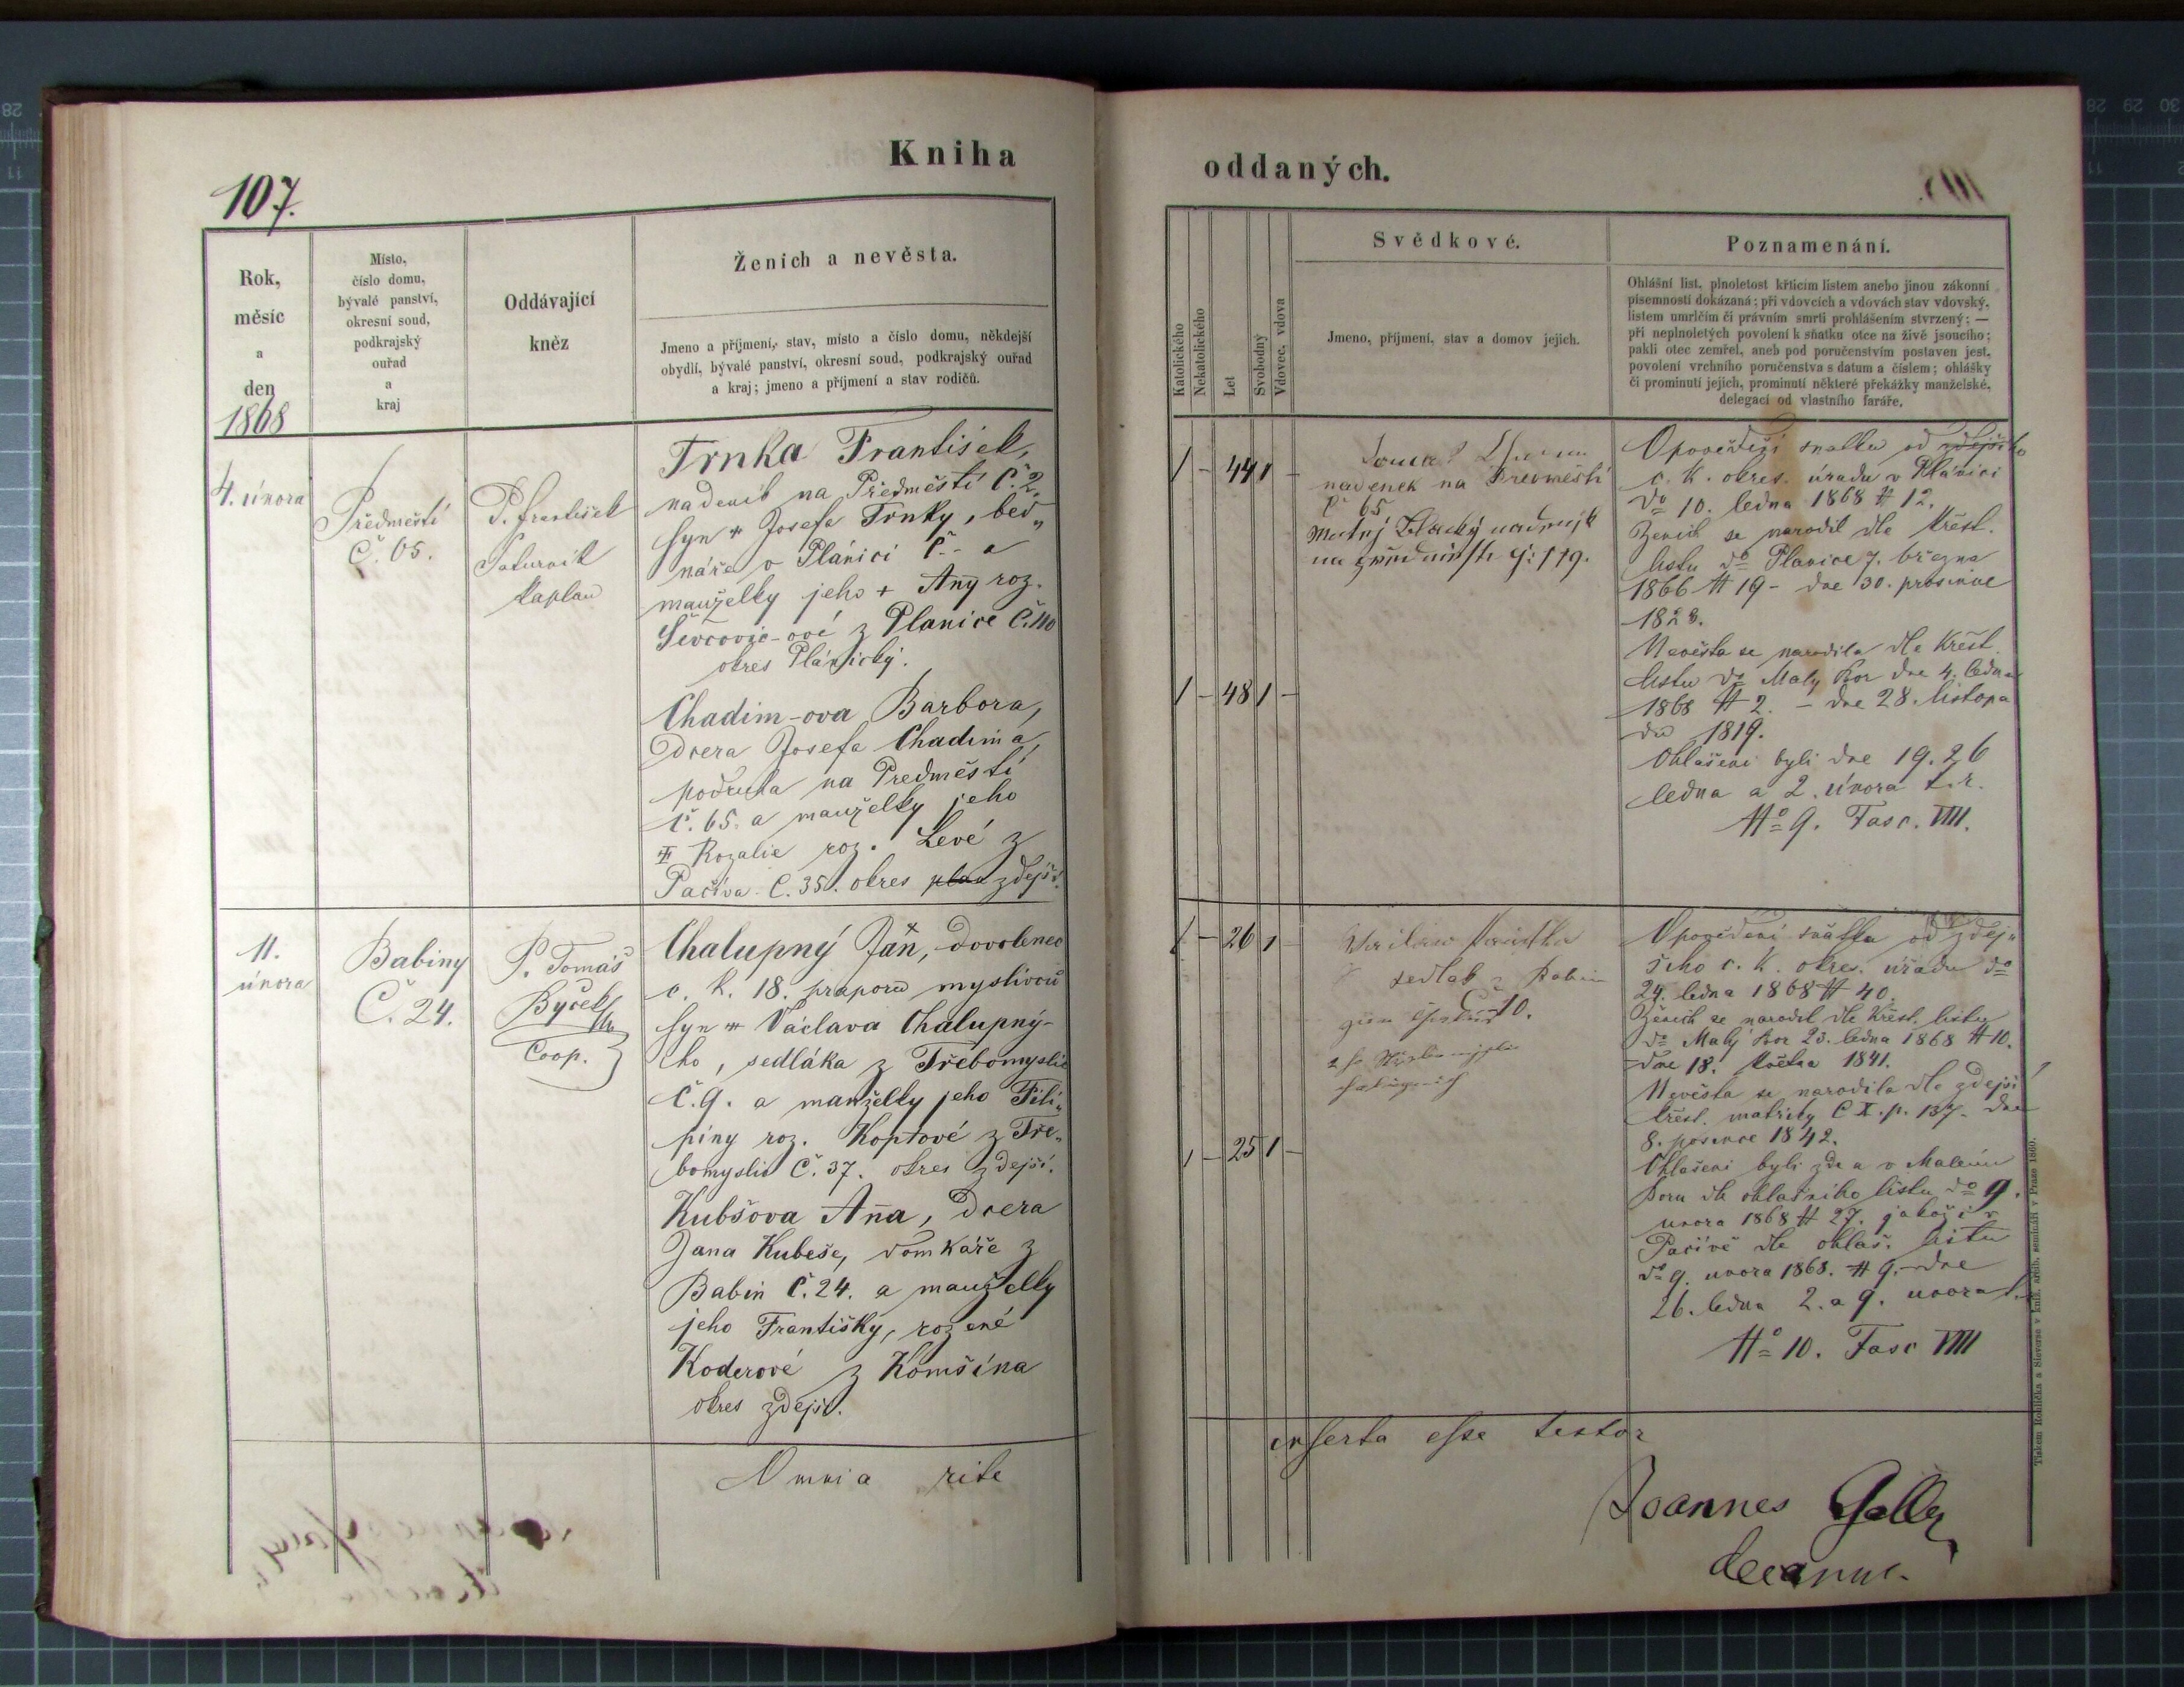 Kniha
107.
Rok,
měsíc
a
den
1868
Místo,
číslo domu,
bývalé panství,
okresní soud,
podkrajský
ouřad
a
kraj
Oddávající
kněz
Ženich a nevěsta.
Jmeno a příjmení, stav, místo a číslo domu, někdejší
obydlí, bývalé panství, okresní soud, podkrajský ouřad
a kraj; jmeno a příjmení a stav rodičů.
4. února
Předměstí
Č. 65.
P. František
kaplan
Trnka František,
nadeník na Předměstí Č. 2.
syn Josefa Trnky, bed„
náře v Plánici Č.- a
manželky jeho + Any roz.
Ševcovic-ové z Planice Č. 110
okres Plánický.
Chadim-ova Barbora,
dcera Josefa Chadima,
podruha na Predměstí
Č. 65. a manželky jeho
Rozalie roz. Levé z
Pačiva Č. 35. okres zdejší.
11.
února
Babiny
Č. 24.
P. Tomáš
Byček
Coop.
Chalupný Jan, dovolenec
c. k. 18. praporu myslivců
syn Václava Chalupný-
ho, sedláka z Třebomyslic
Č. 9. a manželky jeho Fili„
piny roz. Koptové z Tře„
bomyslic Č. 37. okres zdejší.
Kubšova Ana, dcera
Jana Kubeše, domkáře z
Babin Č. 24. a manželky
jeho Františky, rozené
Koderové z Komšína
okres zdejší.
Omnia rite
oddaných.
Katolického
Nekatolického
Let
Svobodný
Vdovec, vdova
Svědkové.
Jmeno, příjmení, stav a domov jejich.
Poznamenání.
Ohlášní list, plnoletost křticím listem anebo jinou zákonní
písemností dokázaná; při vdovcích a vdovách stav vdovský,
listem umrlčím či právním smrti prohlášením stvrzený; —
při neplnoletých povolení k sňatku otce na živě jsoucího;
pakli otec zemřel, aneb pod poručenstvím postaven jest,
povolení vrchního poručenstva s datum a číslem; ohlášky
či prominutí jejich, prominutí některé překážky manželské,
delegací od vlastního faráře.
1 - 44 1 -
nadenek na Predměstí
Č 65
1 - 48 1 -
Opovedění snatku od zdejšího
c. k. okres. úradu v Plánici
do 10. ledna 1868 # 12.
Ženich se narodil dle křest.
listu do Planice 7. března
1866 # 19 - dne 30. prosince
1823.
Nevěsta se narodila dle křest.
listu do Maly Bor dne 4. ledna
1868 # 2. - dne 28. listopa
du 1819.
Ohlášeni byli dne 19. 26
ledna a 2. února t. r.
No 9. Fasc. VIII.
1 - 26 1 -
sedlak z Babin
10.
1 - 25 1 -
Opovedení snatku od zdej„
šího c. k. okres. úřadu do
24. ledna 1868 # 40.
Ženich se narodil dle křest. listu
do Malý Bor 23. ledna 1868 # 10.
dne 18. května 1841.
Nevěsta se narodila dle zdejší
křest. matriky C X. p. 137. dne
8. prosince 1842.
Ohlášeni byli zde a v Malém
Boru dle ohlašního listu do 9.
unora 1868 # 27. jakož i v
Pačivě dle ohlaš. listu
do 9. unora 1868. # 9. dne
26. ledna 2. a 9. unora
No 10. Fasc VIII
inserta esse testor
Joannes
decanus.
Tiskem Rohlíčka a Sieverse v kníž. arcib. semináři v Praze 1860.